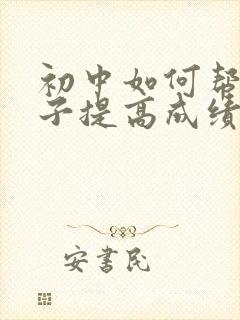 初中如何帮
子提高成绩
安书民